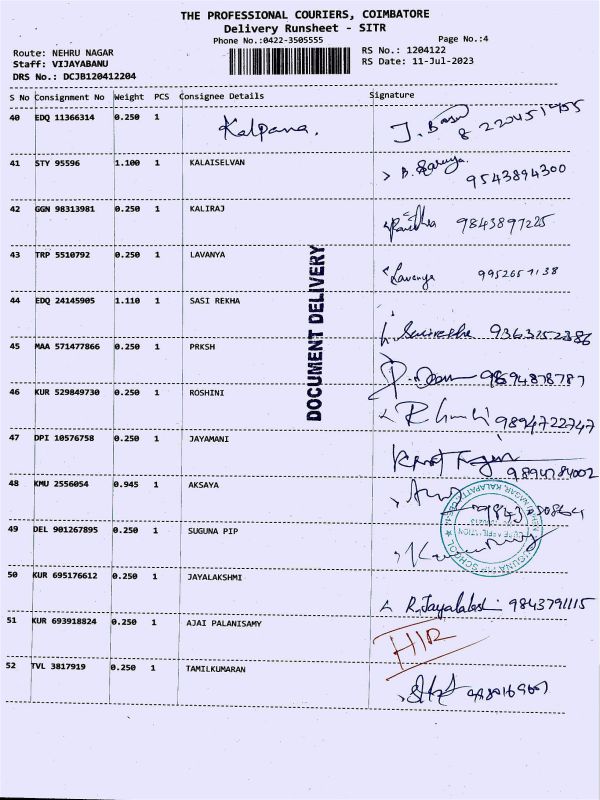 THE PROFESSIONAL COURIERS, COIMBATORE
Delivery Runsheet - SITR
Phone No.:0422-3505555 Page No.:4
Route: NEHRU NAGAR RS No.: 1204122
Staff: VIJAYABANU RS Date: 11-Jul-2023
DRS No.: DCJB120412204
S No Consignment No Weight PCS Consignee Details Signature
40 EDQ 11366314 0.250 1 Kalpana.
41 STY 95596 1.100 1 KALAISELVAN 9543894300
42 GGN 98313981 0.250 1 KALIRAJ 9843897225
43 TRP 5510792 0.250 1 LAVANYA Lavanya 9952651138
44 EDQ 24145905 1.110 1 SASI REKHA 9363152386
45 MAA 571477866 0.250 1 PRKSH 9894878787
46 KUR 529849730 0.250 1 ROSHINI 9894722747
47 DPI 10576758 0.250 1 JAYAMANI 9894784002
48 KMU 2556054 0.945 1 AKSAYA
49 DEL 901267895 0.250 1 SUGUNA PIP
50 KUR 695176612 0.250 1 JAYALAKSHMI R. Jayalakshmi 9843791115
51 KUR 693918824 0.250 1 AJAI PALANISAMY
52 TVL 3817919 0.250 1 TAMILKUMARAN
DOCUMENT DELIVERY